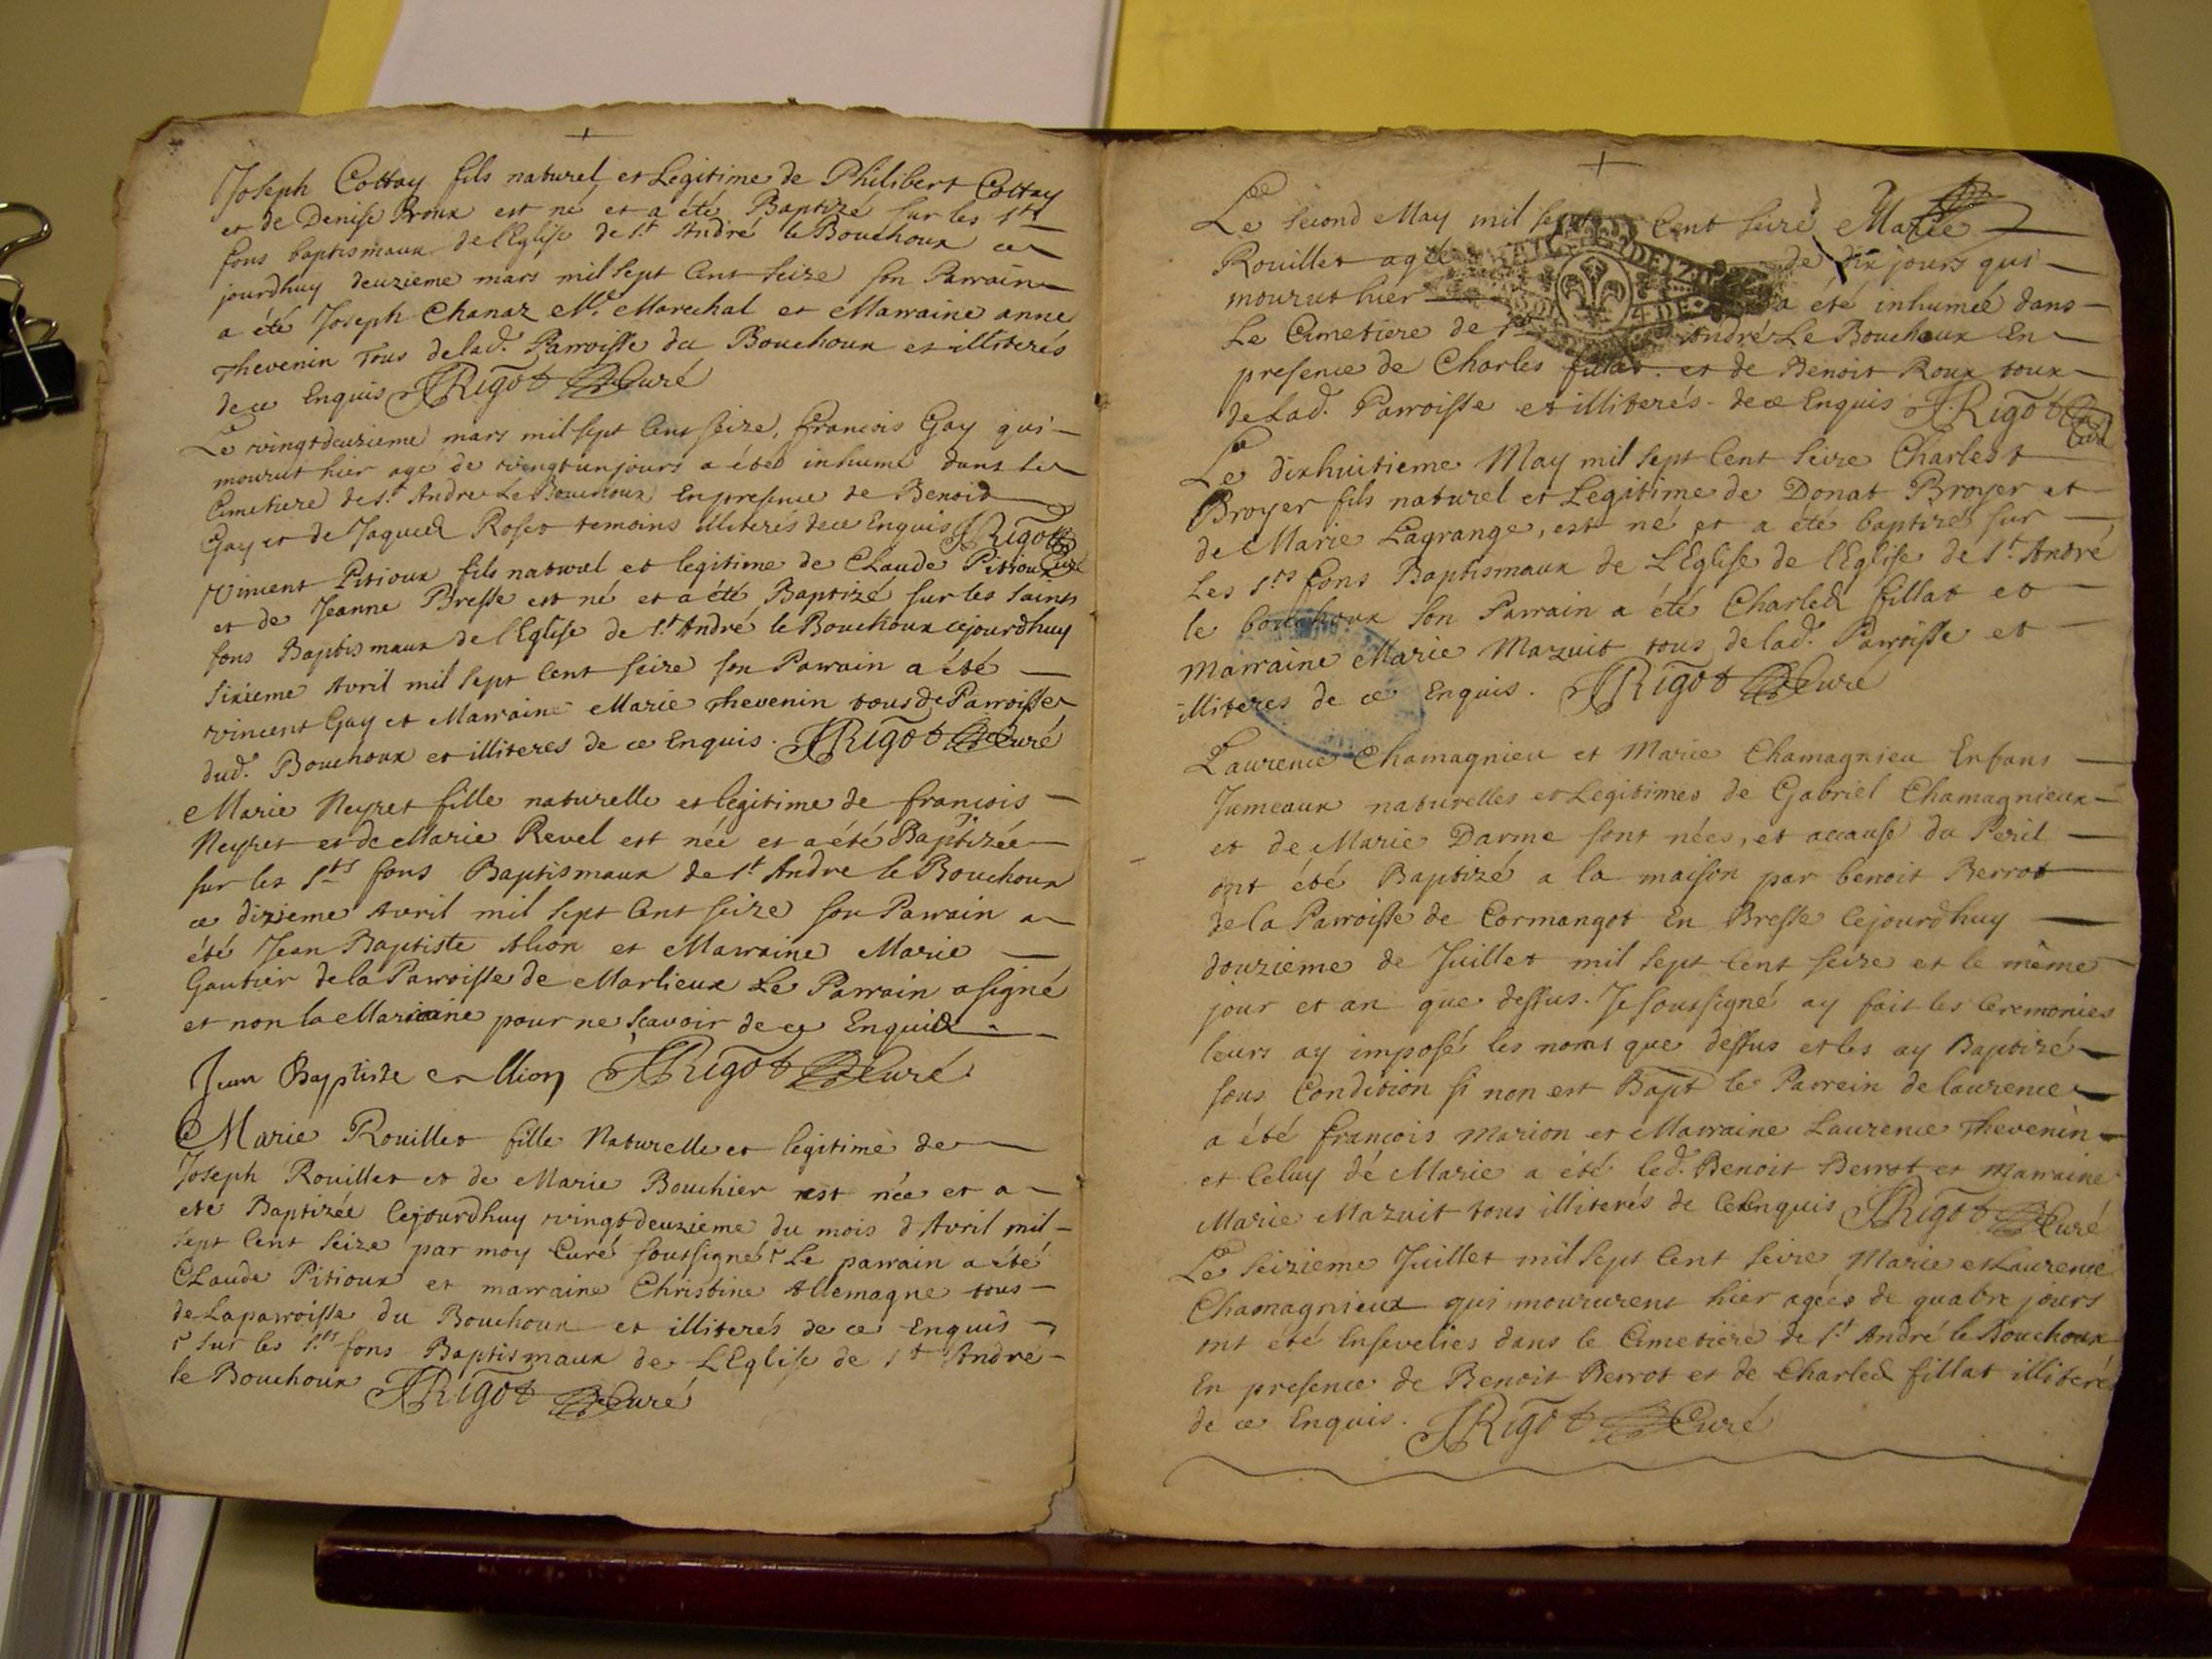 Joseph Cottay fils naturel et Legitime de Philibert Cottay
et de Denise Proux est né et a été Baptizé sur les Sts
fons baptismaux de l'Eglise de St André le Bouchoux ce
jourdhuy deuzieme mars mil sept Cent seize son Parrain
a été Joseph Chanaz Me Marechal et Marraine anne
Thevenin Tous de lad. Parroisse du Bouchoux et illiterés
de ce Enquis JRigot Curé
Le vingtdeuzieme mars mil sept Cent seize, francois Gay qui
mourut hier agé de vingtunjours a éteé inhumé dans le
Cimetiere de St Andre Le Bouchoux En presence de Benoit
Gay et de Jaques Roset temoins illiterés de ce Enquis JRigot
Curé
Vincent Pitioux fils naturel et legitime de CLaude Pitioux
et de Jeanne Bresse est né et a été Baptizé sur les saints
fons Baptismaux de l'Eglise de St André le Bouchoux cejourdhuy
sixieme Avril mil sept Cent seize son Parrain a été
vincent Gay et Marraine Marie Thevenin tous de Parroisse
dud. Bouchoux et illiteres de ce Enquis. JRigot Curé
Marie Neyret fille naturelle et legitime de francois
Neyret et de Marie Revel est née et a été Baptizée
sur les Sts fons Baptismaux de St Andre le Bouchoux
ce dizieme Avril mil sept Cent seize son Parrain a
été Jean Baptiste Alion et Marraine Marie
Gautier de la Parroisse de Marlieux Le Parrain a signé
et non la Marraine pour ne scavoir de ce Enquis
Jean Baptiste allion JRigot Curé
Marie Rouillet fille Naturelle et legitime de
Joseph Rouillet et de Marie Bouchier est née et a
eté Baptizée Cejourdhuy vingtdeuzieme du mois d'Avril mil
sept Cent seize par moy Curé soussigné Le parrain a été
CLaude Pitioux et marraine Christine Allemagne tous
de Laparroisse du Bouchoux et illiterés de ce Enquis
sur les Sts fons Baptismaux de L'Eglise de St André
le Bouchoux JRigot Curé
Le second May mil sept Cent seize Marie
Rouillet agée de dix jours qui
mourut hier a été inhumée dans
Le Cimetiere de St André Le Bouchoux En
presence de Charles fillat et de Benoit Roux toux
de Lad. Parroisse et illiterés de ce Enquis JRigot
Curé
Le dixhuitieme May mil sept Cent seize Charles
Broyer fils naturel et Legitime de Donat Broyer et
de Marie Lagrange, est né et a été baptizé sur
Les Sts fons Baptismaux de L'Eglise de l'Eglise de St André
le bouchoux son Parrain a été Charles fillat et
Marraine Marie Mazuit tous de lad. Parroisse et
illiteres de ce Enquis. JRigot Curé
Laurence Chamagnieu et Marie Chamagnieu Enfans
Jumeaux naturelles et Legitimes de Gabriel Chamagnieux
et de Marie Darme sont nées, et acause du Peril
ont été Baptizé a la maison par benoit Berrot
de la Parroisse de Cormangot En Bresse Cejourdhuy
douzieme de Juillet mil sept Cent seize et le même
jour et an que dessus. Je soussigné ay fait les Ceremonies
leurs ay imposé les noms que dessus et les ay Baptizé
sous Condition si non est Bapt le Parrein de laurence
a été francois Marion et Marraine Laurence Thevenin
et Celuy dé Marie a été led. Benoit Berrot et Marraine
Marie Mazuit tous illiterés de Ce Enquis JRigot Curé
Le seizieme Juillet mil sept Cent seize Marie et Laurence
Chamagnieux qui moururent hier agées de quatre jours
ont été Ensevelies dans le Cimetiere de St André le Bouchoux
En presence de Benoit Berrot et de Charles fillat illiterés
de ce Enquis. JRigot Curé